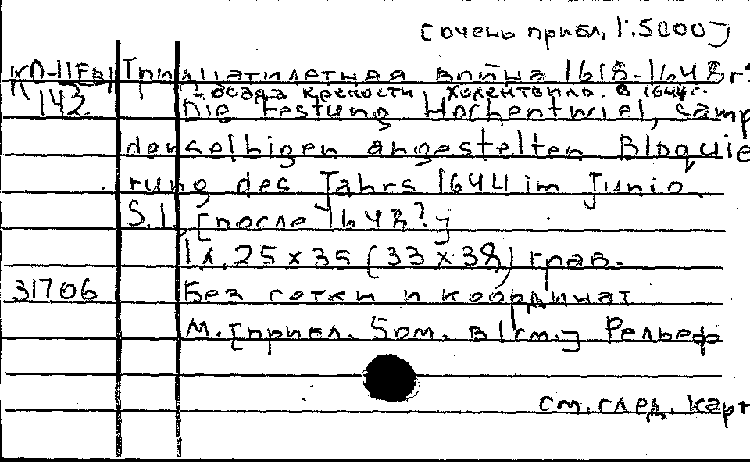 [очень прибл. 1:5000]
КО-11Fвг Тридцатилетная война 1618-1648 гг.
Осада крепости Хохентвиль. в 1644 г.
142 Die Festung Hochentwiel, samp
derselbigen angestelten Bloquie
rung des Jahrs 1644 im Junio.
S.l. [после 1648?]
1 л. 25 x 35 (33 x 38) грав.
31706 Без сетки и координат
М. [прибл. 50м. в 1см.] Рельеф
см. след. карт